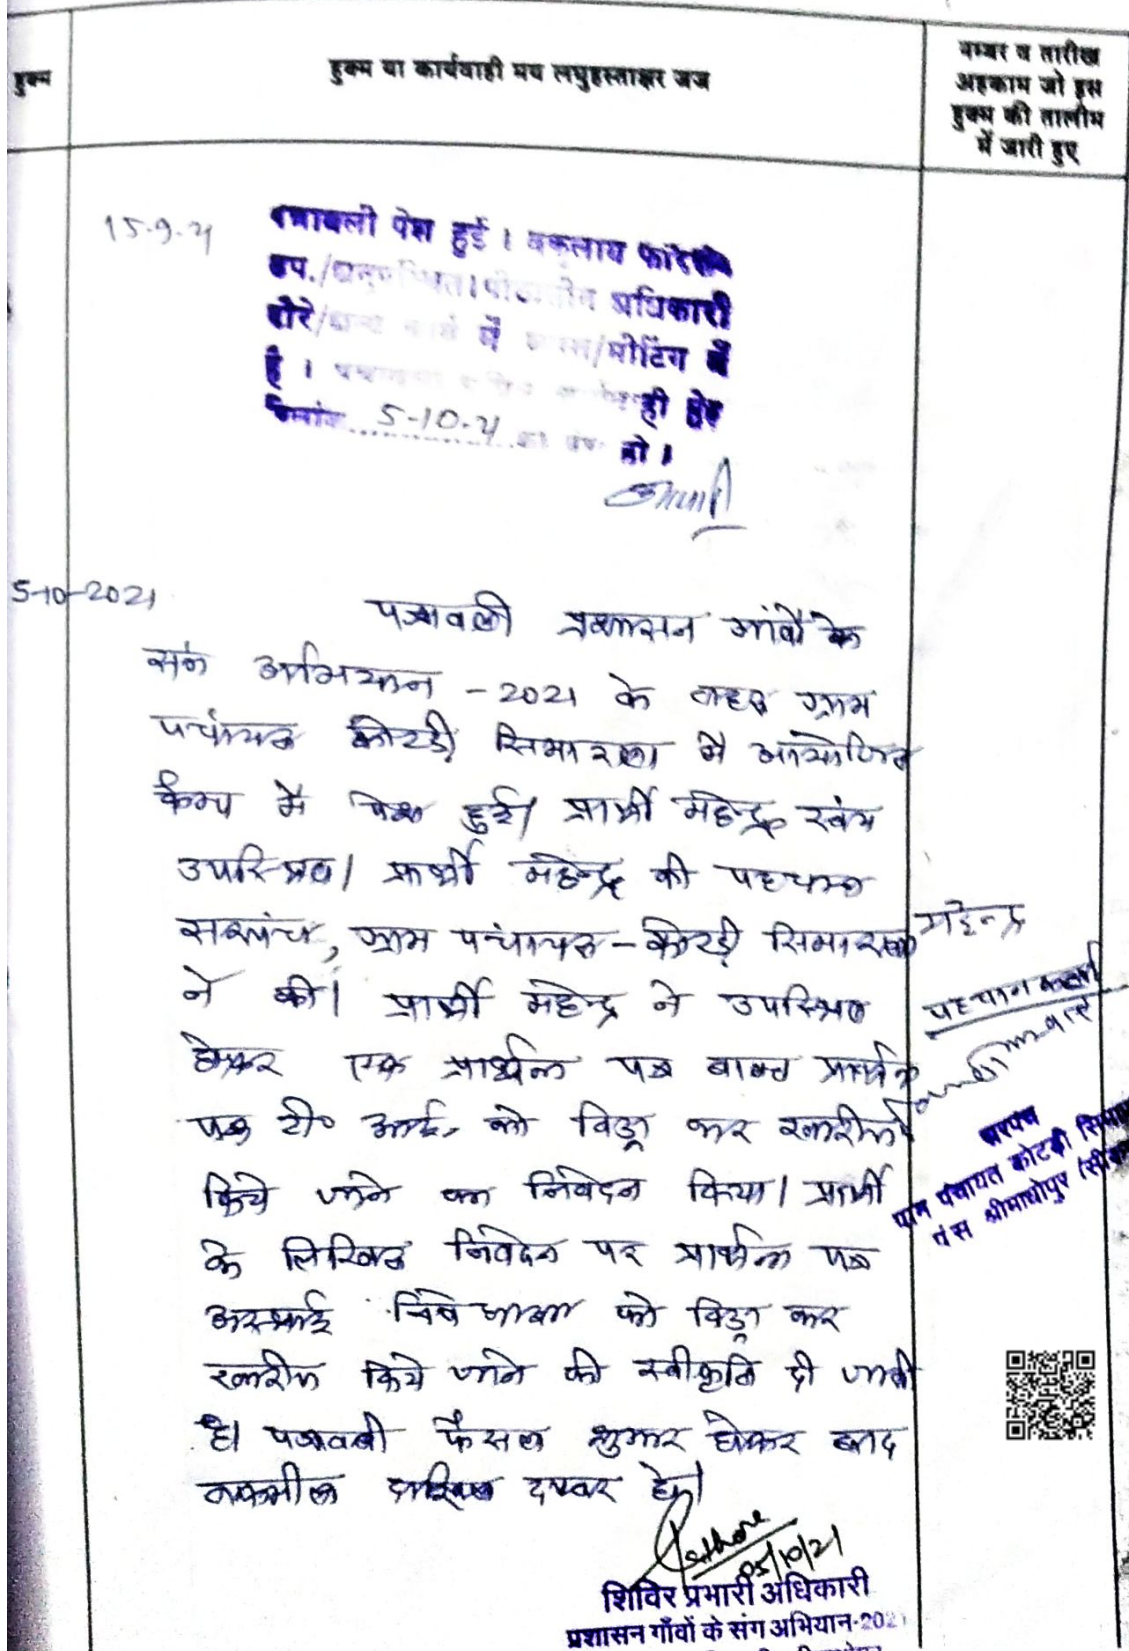 हुक्म
हुक्म या कार्यवाही मय लघुहस्ताक्षर जज
नम्बर व तारीख
अहकाम जो इस
हुक्म की तालीम
में जारी हुए
15-9-21
पत्रावली पेश हुई । वकलाय फरिकेन
उप./अनुपस्थित। पीठासीन अधिकारी
दौरे/अन्य कार्य में व्यस्त/मीटिंग में
है ।
दिनांक 5-10-21 को पेश हो ।
5-10-2021
पत्रावली प्रशासन गांवो के
संग अभियान -2021 के तहत ग्राम
पचांयत कोटडी सिमारला मे आयोजित
कैम्प मे पेश हुई। प्रार्थी महेन्द्र स्वंय
उपस्थित। प्रार्थी महेन्द्र की पहचान
सरपंच, ग्राम पंचायत - कोटडी सिमारला
ने की। प्रार्थी महेन्द्र ने उपस्थित
होकर एक प्रार्थना पत्र बाबत प्रार्थना
पत्र टी० आई. को विड्रा कर खारीज
किये जाने का निवेदन किया। प्रार्थी
के लिखित निवेदन पर प्रार्थना पत्र
अस्थाई निषेधाज्ञा को विड्रा कर
खारीज किये जाने की स्वीकृति दी जाती
है। पत्रावली फैसल शुमार होकर बाद
तकमील दाखिल दफ्तर हो।
महेन्द्र
पहचानकर्ता
सरपंच
ग्राम पंचायत कोटडी
पं स श्रीमाधोपुर
05/10/21
शिविर प्रभारी अधिकारी
प्रशासन गाँवों के संग अभियान-2021